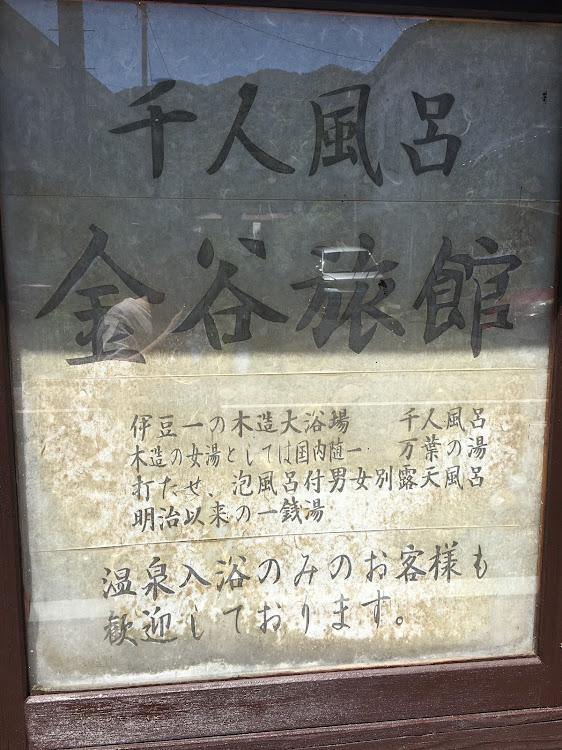 千人風呂
金谷旅館
伊豆一の木造大浴場　千人風呂
木造の女湯としては国内随一　万葉の湯
打たせ、泡風呂付男女別露天風呂
明治以来の一銭湯
温泉入浴のみのお客様も
歓迎しております。